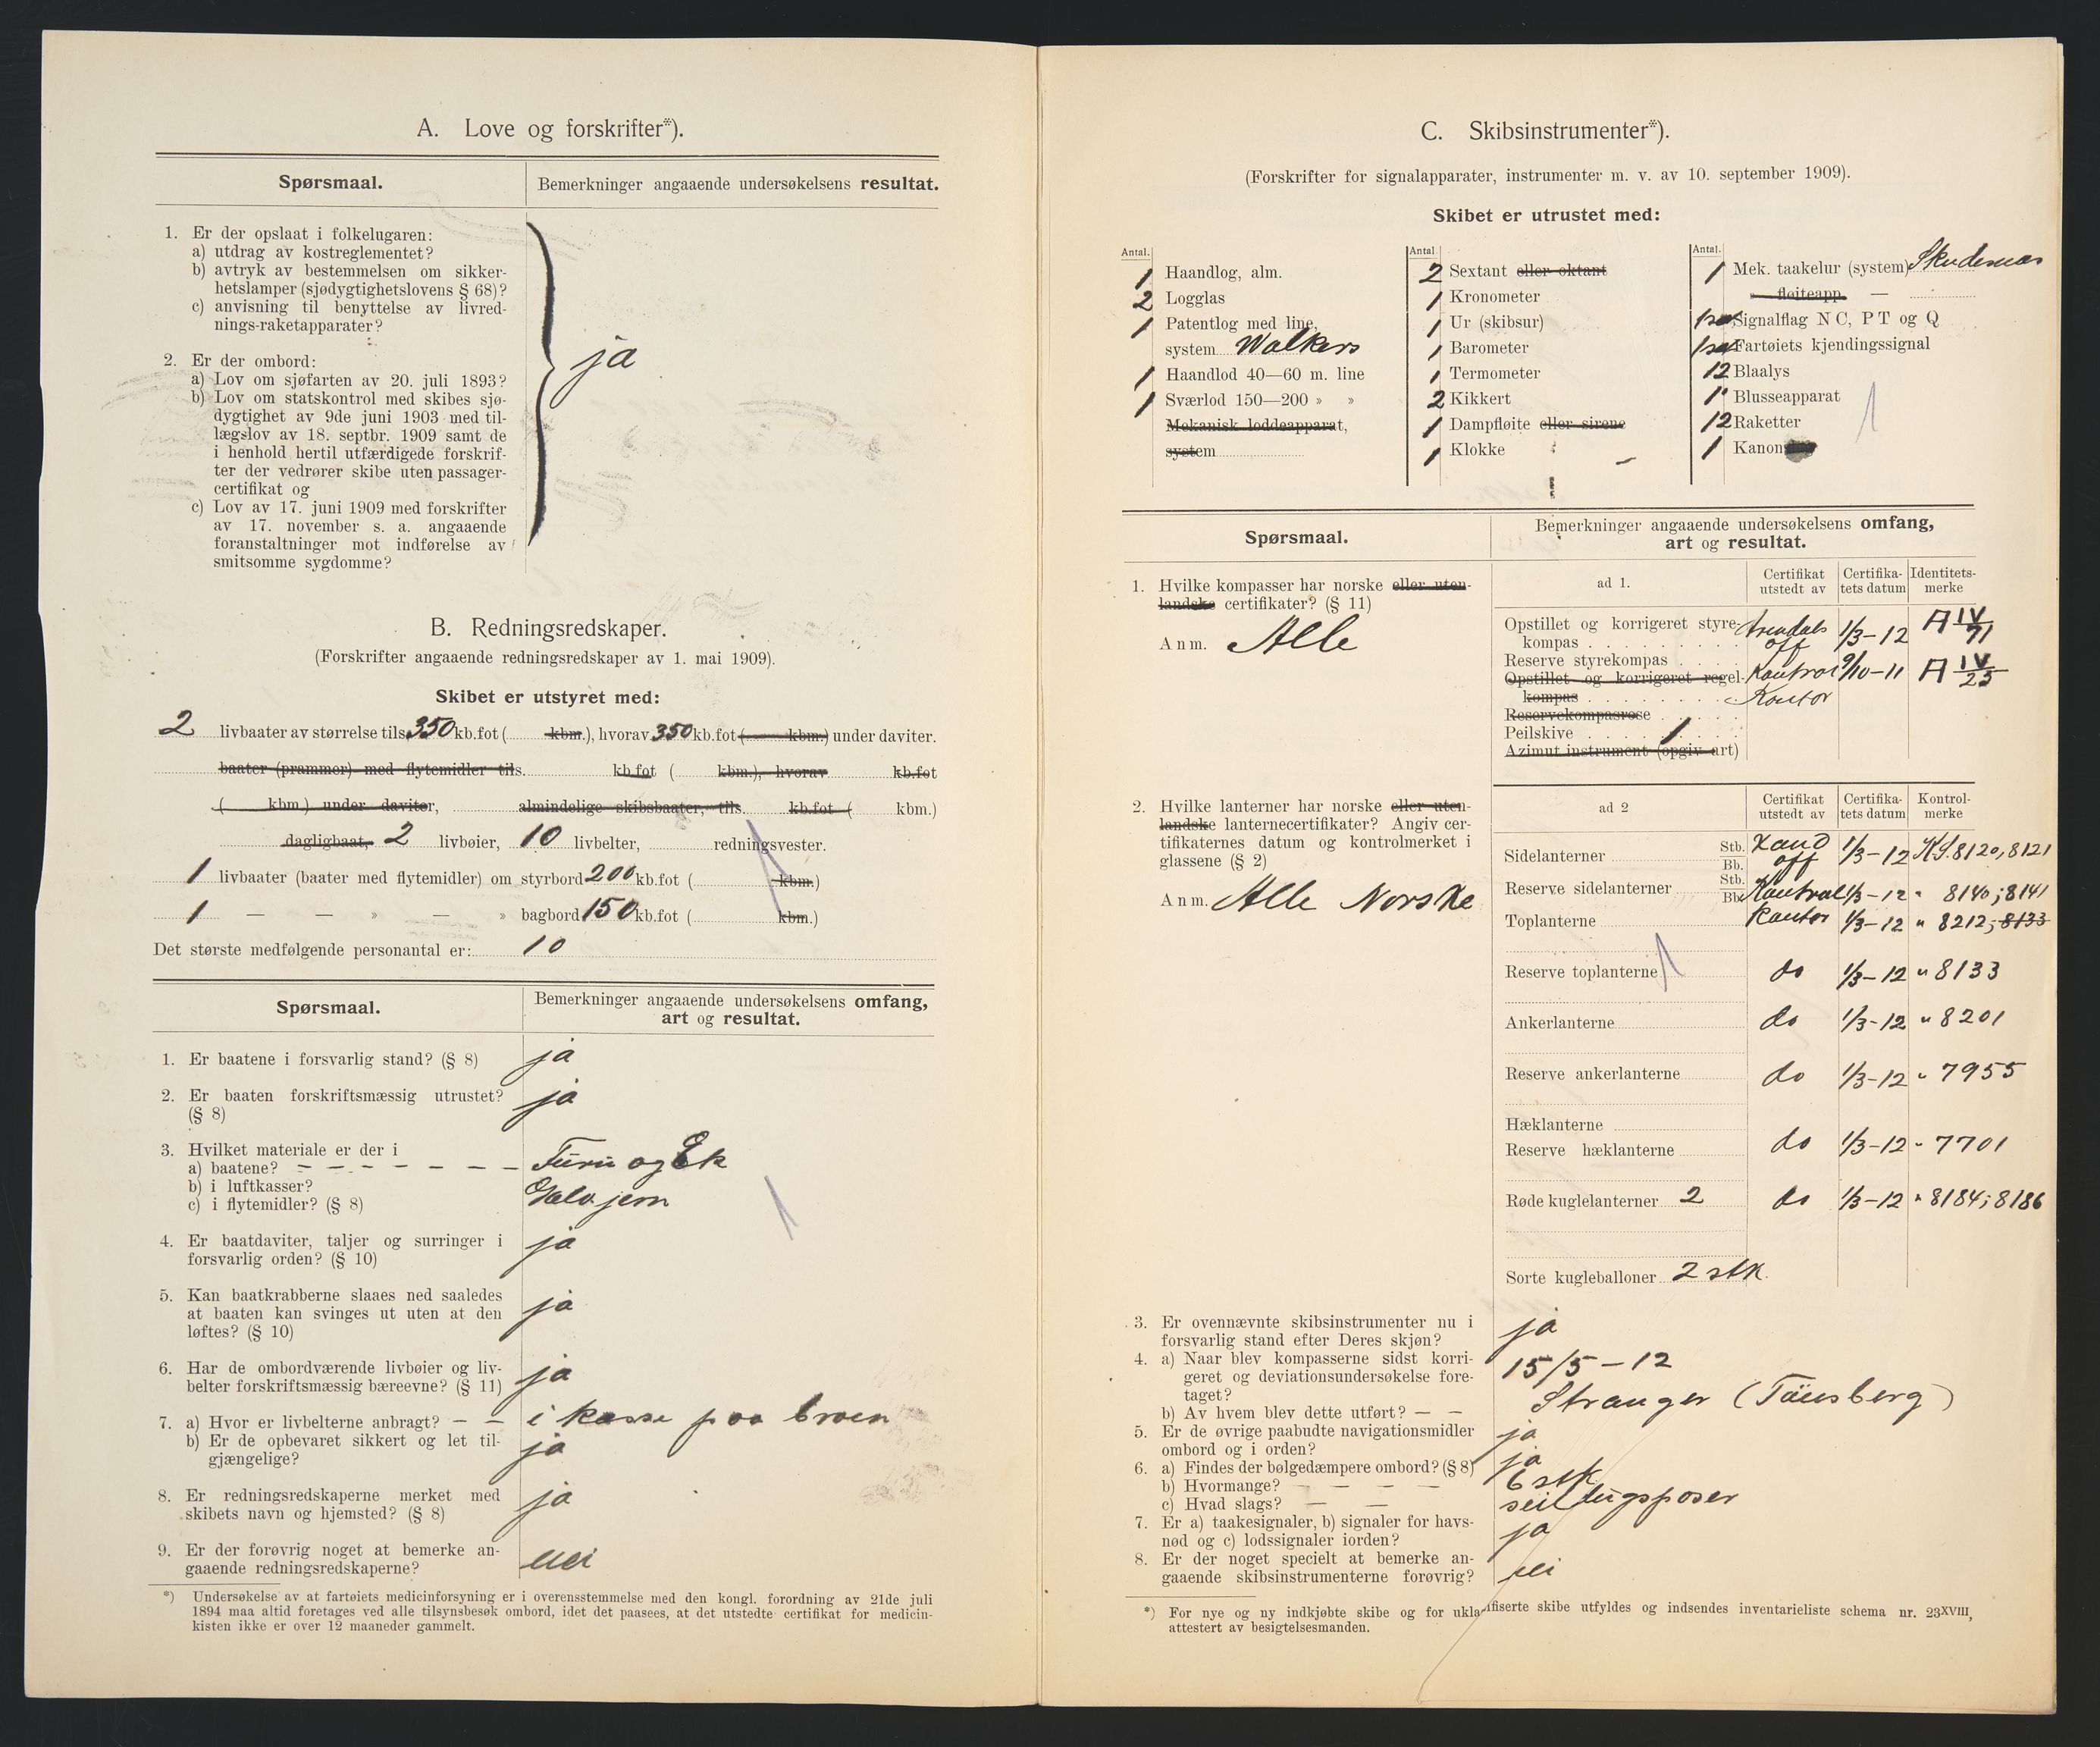 A. Love og forskrifter*).
Spørsmaal.
Bemerkninger angaaende undersøkelsens resultat.
1. Er der opslaat i folkelugaren:
a) utdrag av kostreglementet?
b) avtryk av bestemmelsen om sikker-
hetslamper (sjødygtighetslovens § 68)?
c) anvisning til benyttelse av livred-
nings-raketapparater?
2. Er der ombord:
a) Lov om sjøfarten av 20. juli 1893?
b) Lov om statskontrol med skibes sjø-
dygtighet av 9de juni 1903 med til-
lægslov av 18. septbr. 1909 samt de
i henhold hertil utfærdigede forskrif-
ter der vedrører skibe uten passager-
certifikat og
c) Lov av 17. juni 1909 med forskrifter
av 17. november s. a. angaaende
foranstaltninger mot indførelse av
smitsomme sygdomme?
ja
B. Redningsredskaper.
(Forskrifter angaaende redningsredskaper av 1. mai 1909).
Skibet er utstyret med:
2 livbaater av størrelse tils. 350 kb.fot ( kbm.), hvorav 350 kb.fot ( kbm.) under daviter.
baater (prammer) med flytemidler tils. kb.fot ( kbm.), hvorav kb.fot
( kbm.) under daviter, almindelige skibsbaater, tils. kb.fot ( kbm.)
dagligbaat, 2 livbøier, 10 livbelter, redningsvester.
1 livbaater (baater med flytemidler) om styrbord 200 kb.fot ( kbm.)
1 — — » — » bagbord 150 kb.fot ( kbm.)
Det største medfølgende personantal er: 10
Spørsmaal.
Bemerkninger angaaende undersøkelsens omfang,
art og resultat.
1. Er baatene i forsvarlig stand? (§ 8) ja
2. Er baaten forskriftsmæssig utrustet?
(§ 8) ja
3. Hvilket materiale er der i
a) baatene? — — — — — — — Furu og Ek
b) i luftkasser? Galv jern
c) i flytemidler? (§ 8)
4. Er baatdaviter, taljer og surringer i
forsvarlig orden? (§ 10) ja
5. Kan baatkrabberne slaaes ned saaledes
at baaten kan svinges ut uten at den
løftes? (§ 10) ja
6. Har de ombordværende livbøier og liv-
belter forskriftsmæssig bæreevne? (§ 11) ja
7. a) Hvor er livbelterne anbragt? — — i kasse paa broen
b) Er de opbevaret sikkert og let til-
gjængelige? ja
8. Er redningsredskaperne merket med
skibets navn og hjemsted? (§ 8) ja
9. Er der forøvrig noget at bemerke an-
gaaende redningsredskaperne? nei
*) Undersøkelse av at fartøiets medicinforsyning er i overensstemmelse med den kongl. forordning av 21de juli
1894 maa altid foretages ved alle tilsynsbesøk ombord, idet det paasees, at det utstedte certifikat for medicin-
kisten ikke er over 12 maaneder gammelt.
C. Skibsinstrumenter*).
(Forskrifter for signalapparater, instrumenter m. v. av 10. september 1909).
Skibet er utrustet med:
Antal.
1 Haandlog, alm.
2 Logglas
1 Patentlog med line,
system Walkers
1 Haandlod 40—60 m. line
1 Sværlod 150—200 » »
Mekanisk loddeapparat,
system
Antal
2 Sextant eller oktant
1 Kronometer
1 Ur (skibsur)
1 Barometer
1 Termometer
2 Kikkert
1 Dampfløite eller sirene
1 Klokke
Antal.
1 Mek. taakelur (system) Skudesnæs
— fløiteapp. —
Signalflag N C, P T og Q
Fartøiets kjendingssignal
12 Blaalys
1 Blusseapparat
12 Raketter
1 Kanon
Spørsmaal.
Bemerkninger angaaende undersøkelsens omfang,
art og resultat.
1. Hvilke kompasser har norske eller uten-
landske certifikater? (§ 11)
Anm. Alle
ad 1.
Certifikat
utstedt av
Certifika-
tets datum
Identitets-
merke
Opstillet og korrigeret styre-
kompas Arendals off 1/3-12 A IV/71
Reserve styrekompas Kontrol 9/10-11 A IV/25
Opstillet og korrigeret regel-
kompas Kontor
Reservekompasrose
Peilskive 1
Azimut instrument (opgiv art)
2. Hvilke lanterner har norske eller uten-
landske lanternecertifikater? Angiv cer-
tifikaternes datum og kontrolmerket i
glassene (§ 2)
Anm. Alle Norske
ad 2
Certifikat
utstedt av
Certifika-
tets datum
Kontrol-
merke
Sidelanterner Stb. Bb. off 1/3-12 K.S. 8120, 8121
Reserve sidelanterner Stb. Bb. Kontrol 1/3-12 " 8140; 8141
Toplanterne Kontor 1/3-12 " 8212; 8133
Reserve toplanterne do 1/3-12 " 8133
Ankerlanterne do 1/3-12 " 8201
Reserve ankerlanterne do 1/3-12 " 7955
Hæklanterne
Reserve hæklanterne do 1/3-12 " 7701
Røde kuglelanterner 2 do 1/3-12 " 8184; 8186
Sorte kugleballoner 2 stk.
3. Er ovennævnte skibsinstrumenter nu i
forsvarlig stand efter Deres skjøn? ja
4. a) Naar blev kompasserne sidst korri-
geret og deviationsundersøkelse fore-
taget? 15/5-12
b) Av hvem blev dette utført? — — Stranger (Tönsberg)
5. Er de øvrige paabudte navigationsmidler
ombord og i orden? ja
6. a) Findes der bølgedæmpere ombord? (§ 8) ja
b) Hvormange? — — — — 6 stk
c) Hvad slags? — — seildugsposer
7. Er a) taakesignaler, b) signaler for havs-
nød og c) lodssignaler iorden? ja
8. Er der noget specielt at bemerke an-
gaaende skibsinstrumenterne forøvrig? nei
*) For nye og ny indkjøbte skibe og for uklassifiserte skibe utfyldes og indsendes inventarieliste schema nr. 23XVIII,
attestert av besigtelsesmanden.